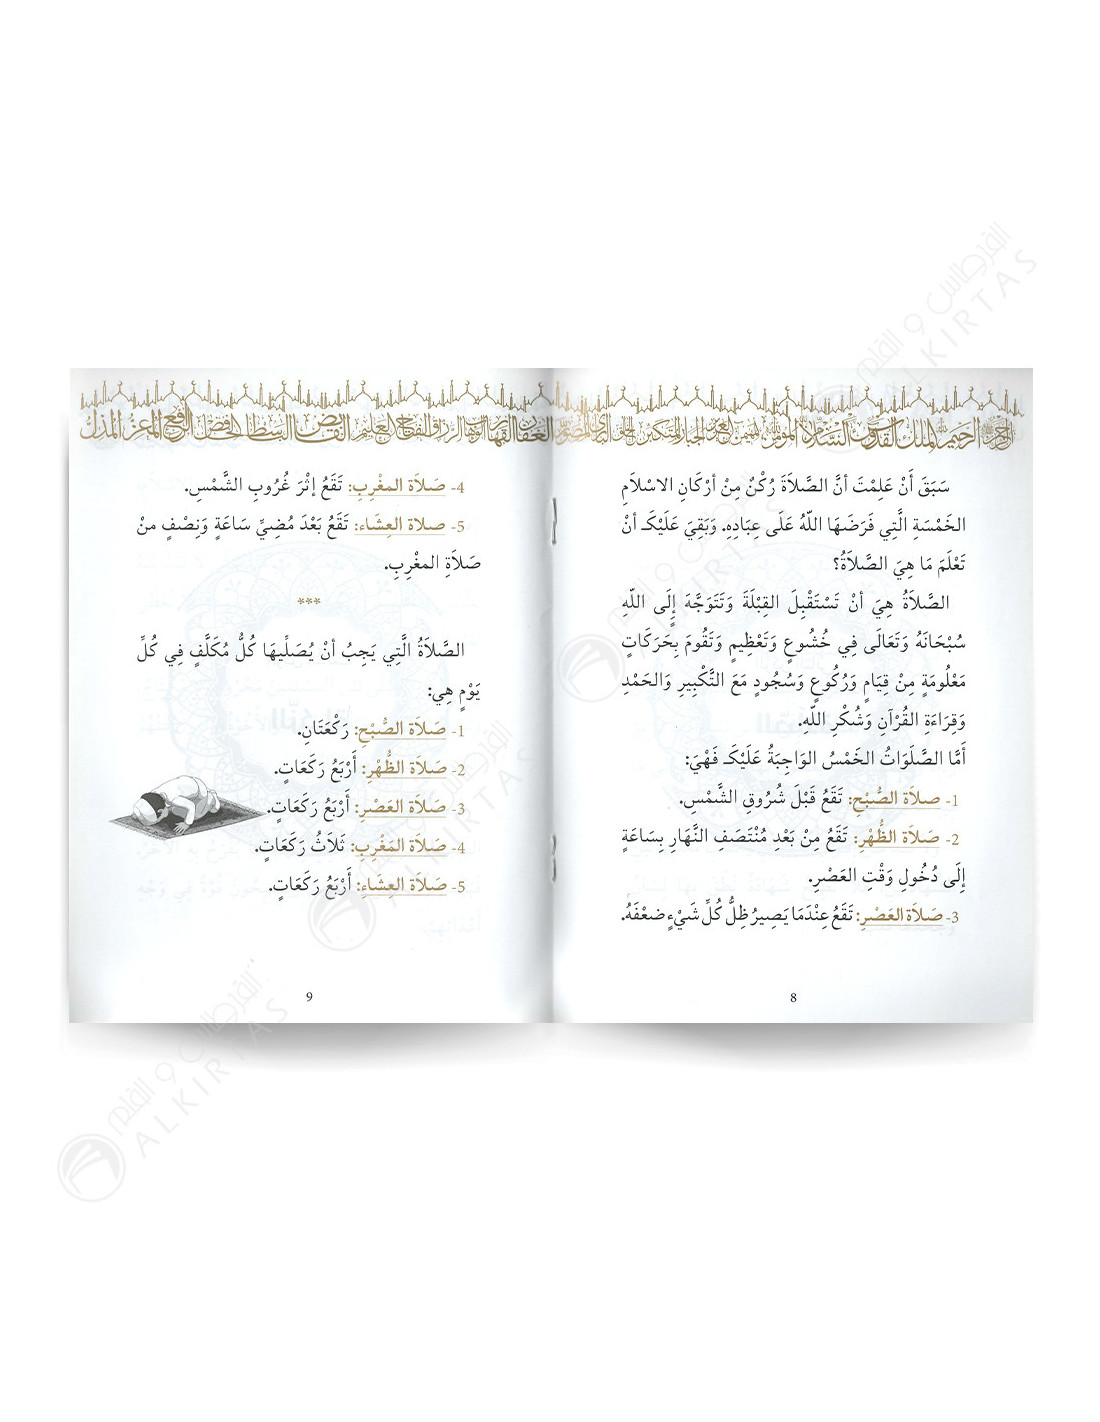 الرحمن الرحيم الملك القدوس السلام المؤمن المهيمن العزيز الجبار المتكبر الخالق البارئ المصور
سَبَقَ أَنْ عَلِمْتَ أنَّ الصَّلَاةَ رُكْنٌ مِنْ أرْكَانِ الاسْلَامِ
الخَمْسَةِ الَّتِي فَرَضَهَا اللّهُ عَلَى عِبَادِهِ. وَبَقِيَ عَلَيْكَ أنْ
تَعْلَمَ مَا هِيَ الصَّلَاةُ؟
الصَّلَاةُ هِيَ أنْ تَسْتَقْبِلَ القِبْلَةَ وَتَتَوَجَّهَ إِلَى اللّهِ
سُبْحَانَهُ وَتَعَالَى فِي خُشُوعٍ وَتَعْظِيمٍ وَتَقُومَ بِحَرَكَاتٍ
مَعْلُومَةٍ مِنْ قِيَامٍ وَرُكُوعٍ وَسُجُودٍ مَعَ التَّكْبِيرِ وَالحَمْدِ
وَقِرَاءَةِ القُرْآنِ وَشُكْرِ اللّهِ.
أَمَّا الصَّلَوَاتُ الخَمْسُ الوَاجِبَةُ عَلَيْكَ فَهْيَ:
1- صَلَاَة الصُّبْحِ: تَقَعُ قَبْلَ شُرُوقِ الشَّمْسِ.
2- صَلَاَة الظُّهْرِ: تَقَعُ مِنْ بَعْدِ مُنْتَصَفِ النَّهَارِ بِسَاعَةٍ
إِلَى دُخُولِ وَقْتِ العَصْرِ.
3- صَلَاَة العَصْرِ: تَقَعُ عِنْدَمَا يَصِيرُ ظِلُّ كُلِّ شَيْءٍ ضعْفَهُ.
8
الغفار القهار الوهاب الرزاق الفتاح العليم القابض الباسط الخافض الرافع المعز المذل
4- صَلَاَة المغْرِبِ: تَقَعُ إثْرَ غُرُوبِ الشَّمْسِ.
5- صلاة العِشَاء: تَقَعُ بَعْدَ مُضِيِّ سَاعَةٍ وَنِصْفٍ منْ
صَلَاَةِ المغْرِبِ.
***
الصَّلَاَةُ الَّتِي يَجِبُ أنْ يُصَلِّيهَا كُلُّ مُكَلَّفٍ فِي كُلِّ
يَوْمٍ هِيَ:
1- صَلَاَة الصُّبْحِ: رَكْعَتَانِ.
2- صَلَاَة الظُّهْرِ: أَرْبَعُ رَكَعَاتٍ.
3- صَلَاَة العَصْرِ: أَرْبَعُ رَكَعَاتٍ.
4- صَلَاَة المَغْرِبِ: ثَلَاثُ رَكَعَاتٍ.
5- صَلَاَة العِشَاءِ: أَرْبَعُ رَكَعَاتٍ.
9
القرطاس و القلم
ALKIRTAS
القرطاس و القلم
ALKIRTAS
القرطاس و القلم
ALKIRTAS